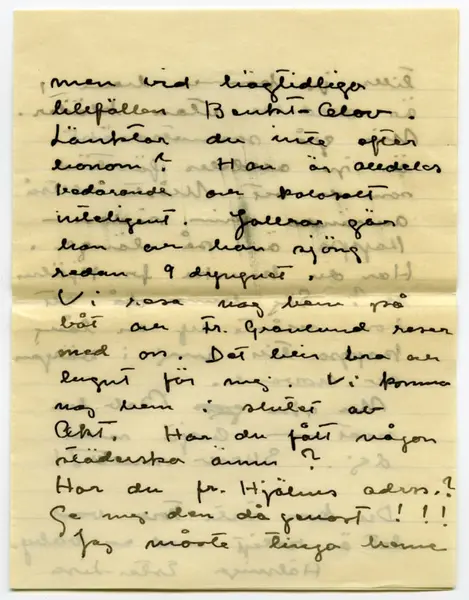 men vid högtidliga
tillfällen Benkt-Olov.
Länktar du inte efter
honom? Han är alldeles
bedårande och kolosalt
inteligent. Gallrar gär
han och han sjöng
redan 9 dyngnet.
Vi resa nog hem på
båt och Fr. Grönlund reser
med oss. Det blir bra och
lugnt för mej. Vi komma
nog hem i slutet av
Okt. Har du fått någon
städerska ännu?
Har du fr. Hjälms adrss.?
Ge mej den då genast!!!
Jag måste tinga henne